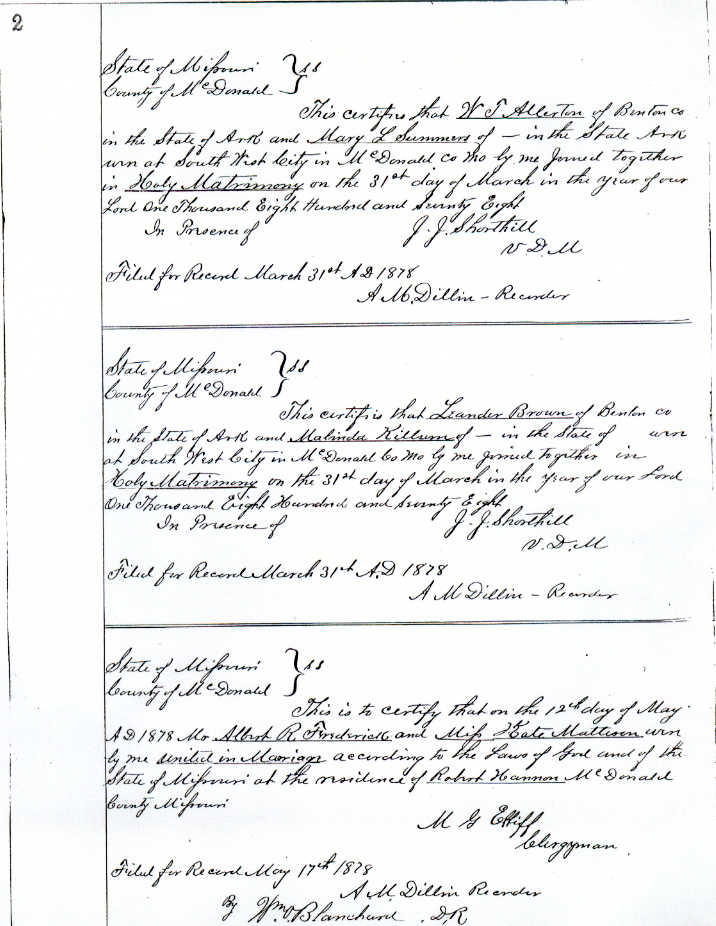 2
State of Missouri } ss
County of McDonald
This certifies that W T Allerton of Benton co
in the State of Ark and Mary L Summers of — in the State Ark
were at South West City in McDonald co Mo by me Joined together
in Holy Matrimony on the 31st day of March in the year of our
Lord One Thousand Eight Hundred and Seventy Eight
In Presence of J. J. Shorthill
V. D. M
Filed for Record March 31st AD 1878
A M. Dillin – Recorder
State of Missouri } ss
County of McDonald
This certifies that Leander Brown of Benton co
in the State of Ark and Malinda Killum of — in the State of were
at South West City in McDonald Co Mo by me joined together in
Holy Matrimony on the 31st day of March in the year of our Lord
One Thousand Eight Hundred and Seventy Eight
In Presence of J. J. Shorthill
V. D. M
Filed for Record March 31st A.D 1878
A M Dillin – Recorder
State of Missouri } ss
County of McDonald
This is to certify that on the 12th day of May
AD 1878 Mr Albert R. Frederick and Miss Kate Mattison were
by me united in Mariage according to the Laws of God and of the
State of Missouri at the residence of Robert Hannon McDonald
County Missouri
M G
Clergyman
Filed for Record May 17th 1878
A M. Dillin Recorder
By Wm O Blanchard . D.R